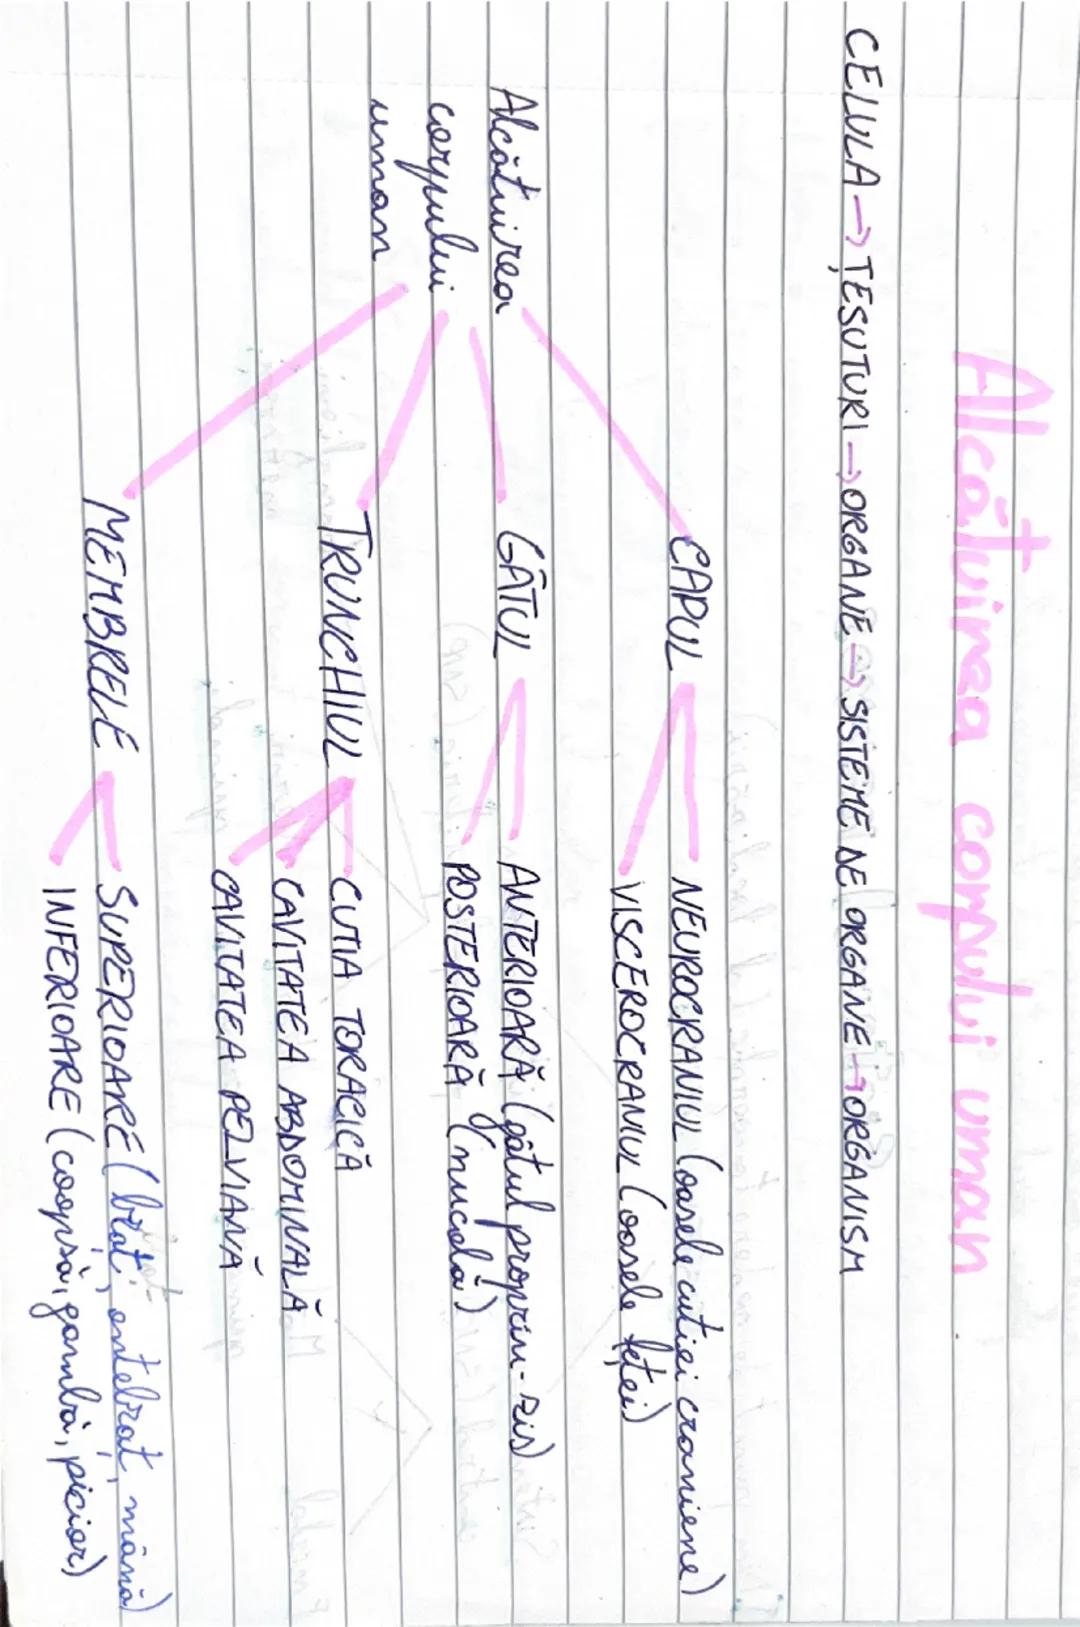 Alcătuirea corpului uman
CELULA → ȚESUTURI → ORGANE → SISTEME DE ORGANE → ORGANISM
CAPUL
NEUROCRANIUL (oasele cutiei craniene)
VISCEROCRANIUL (oasele feței)
Alcătuirea
corpului
uman
GÂTUL
ANTERIOARĂ (gâtul propriu-zis)
POSTERIOARĂ (nucala)
TRUNCHIUL
CUTIA TORACICĂ
CAVITATEA ABDOMINALĂ
CAVITATEA PELVIANĂ
MEMBRELE
SUPERIOARE (braț, antebraț, mână)
INFERIOARE (coapsă, gambă, picior)